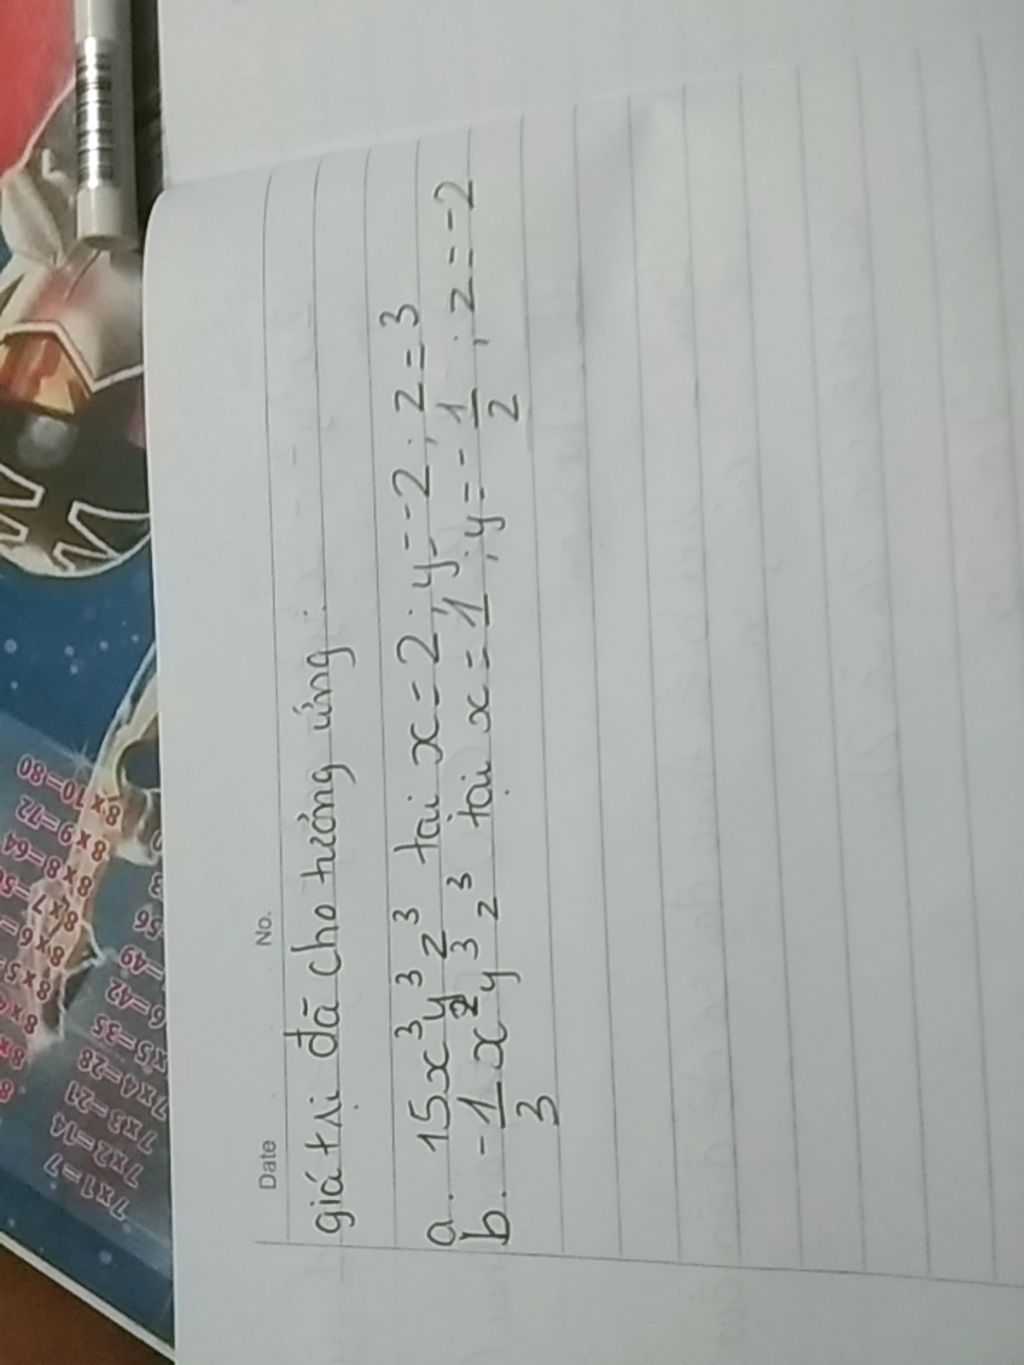 Date No.
giá trị đã cho tương ứng:
a. 15x³y³z³ tại x=2; y=-2; z=3
b. -1/3 x²y³z³ tại x=1; y=-1/2; z=-2
7x1=7
7x2=14
7x3=21
7x4=28
x5=35
6=42
=49
56
8x8=64
8x9=72
8x10=80